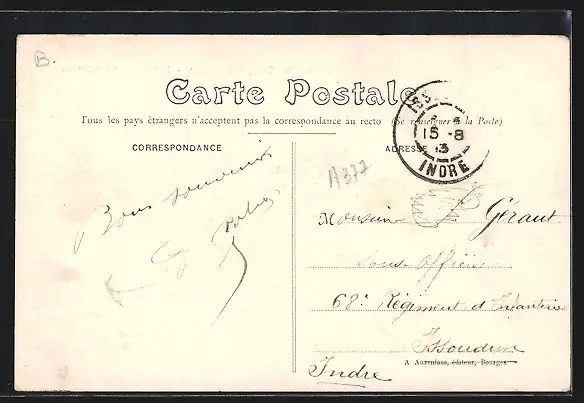 B.
Carte Postale
Tous les pays étrangers n'acceptent pas la correspondance au recto (Se renseigner à la Poste)
CORRESPONDANCE
ADRESSE
15 -8
13
INDRE
A377
Bons souvenirs
Monsieur Géraut
Sous-officier
68e Régiment d'Infanterie
Issoudun
A. Auxenfans, éditeur, Bourges
Indre